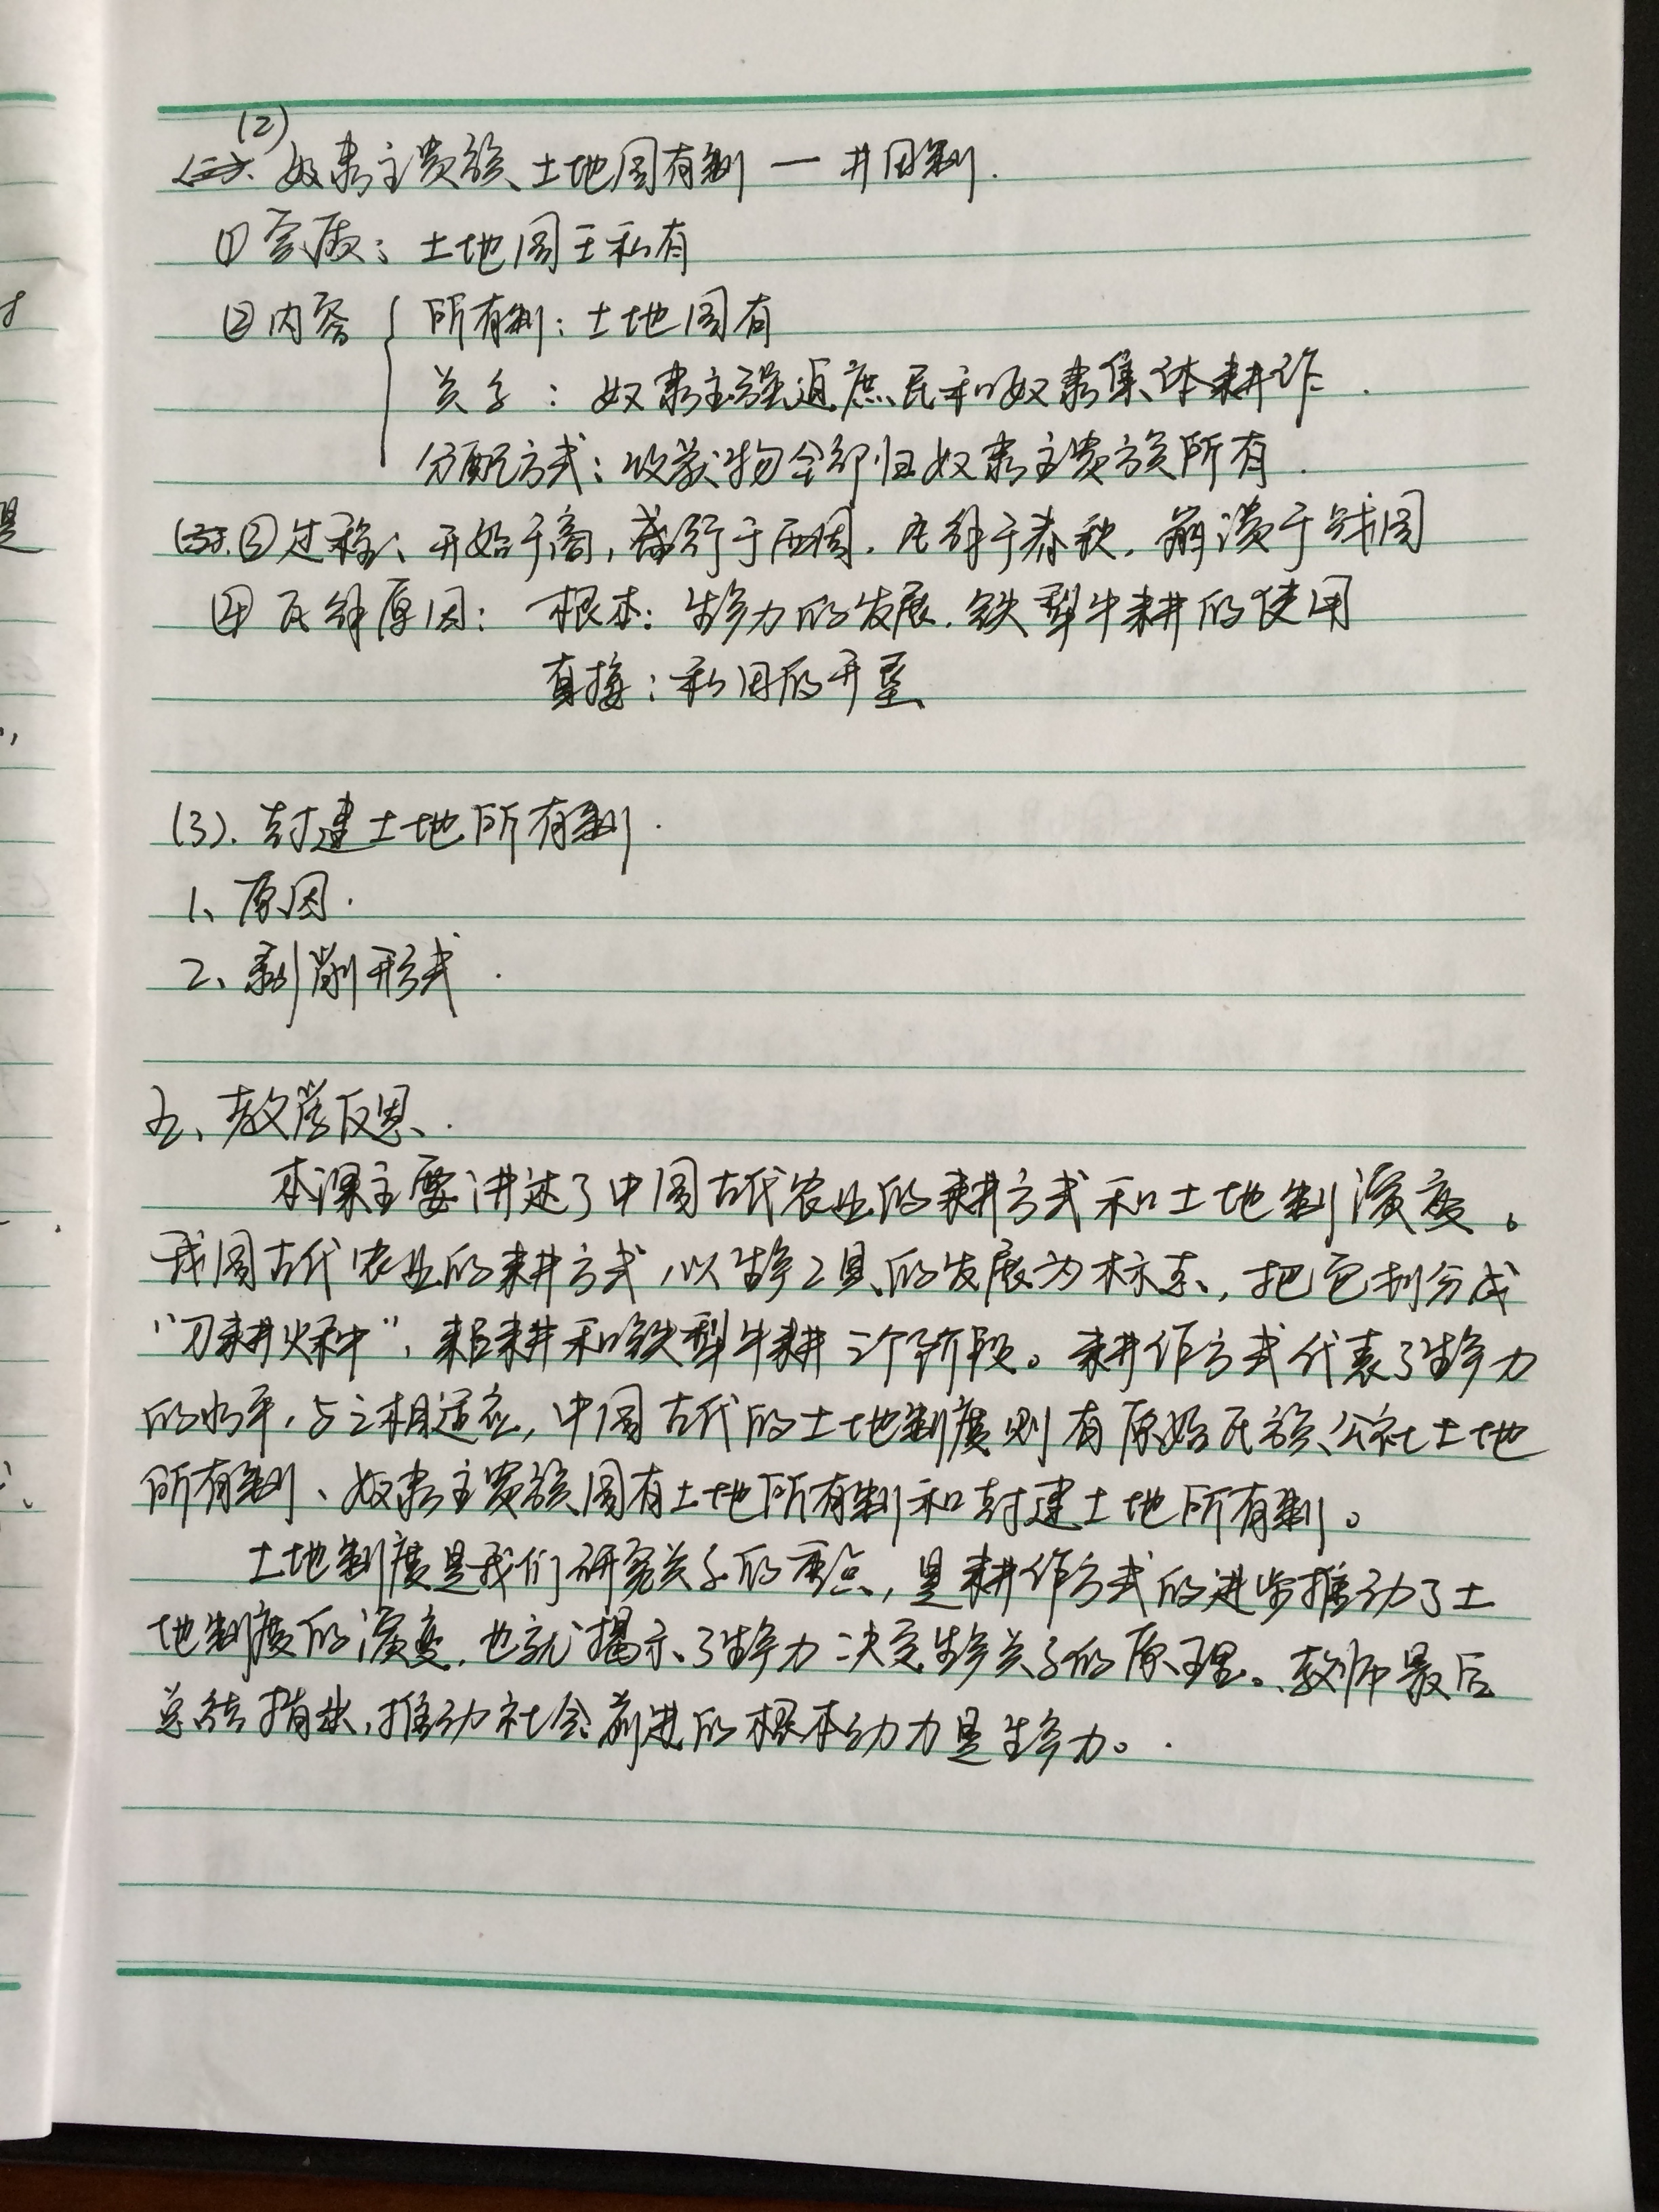 (2)
奴隶主贵族土地国有制 — 井田制.
① 实质：土地国王私有
② 内容 { 所有制：土地国有
关系：奴隶主强迫庶民和奴隶集体耕作.
分配方式：收获物全部归奴隶主贵族所有.
③ 过程：开始于商，盛行于西周，瓦解于春秋，崩溃于战国
④ 瓦解原因：根本：生产力的发展，铁犁牛耕的使用
直接：私田的开垦
(3). 封建土地所有制.
1、原因.
2、剥削形式.
五、教学反思.
本课主要讲述了中国古代农业的耕方式和土地制演变。
我国古代农业的耕方式，以生产工具的发展为标志，把它划分成
“刀耕火种”，耒耜耕和铁犁牛耕三个阶段。耕作方式代表了生产力
的水平，与之相适应，中国古代的土地制度则有原始氏族公社土地
所有制、奴隶主贵族国有土地所有制和封建土地所有制。
土地制度是我们研究关系的重点，是耕作方式的进步推动了土
地制度的演变，也就揭示了生产力决定生产关系的原理。教师最后
总结指出，推动社会前进的根本动力是生产力。